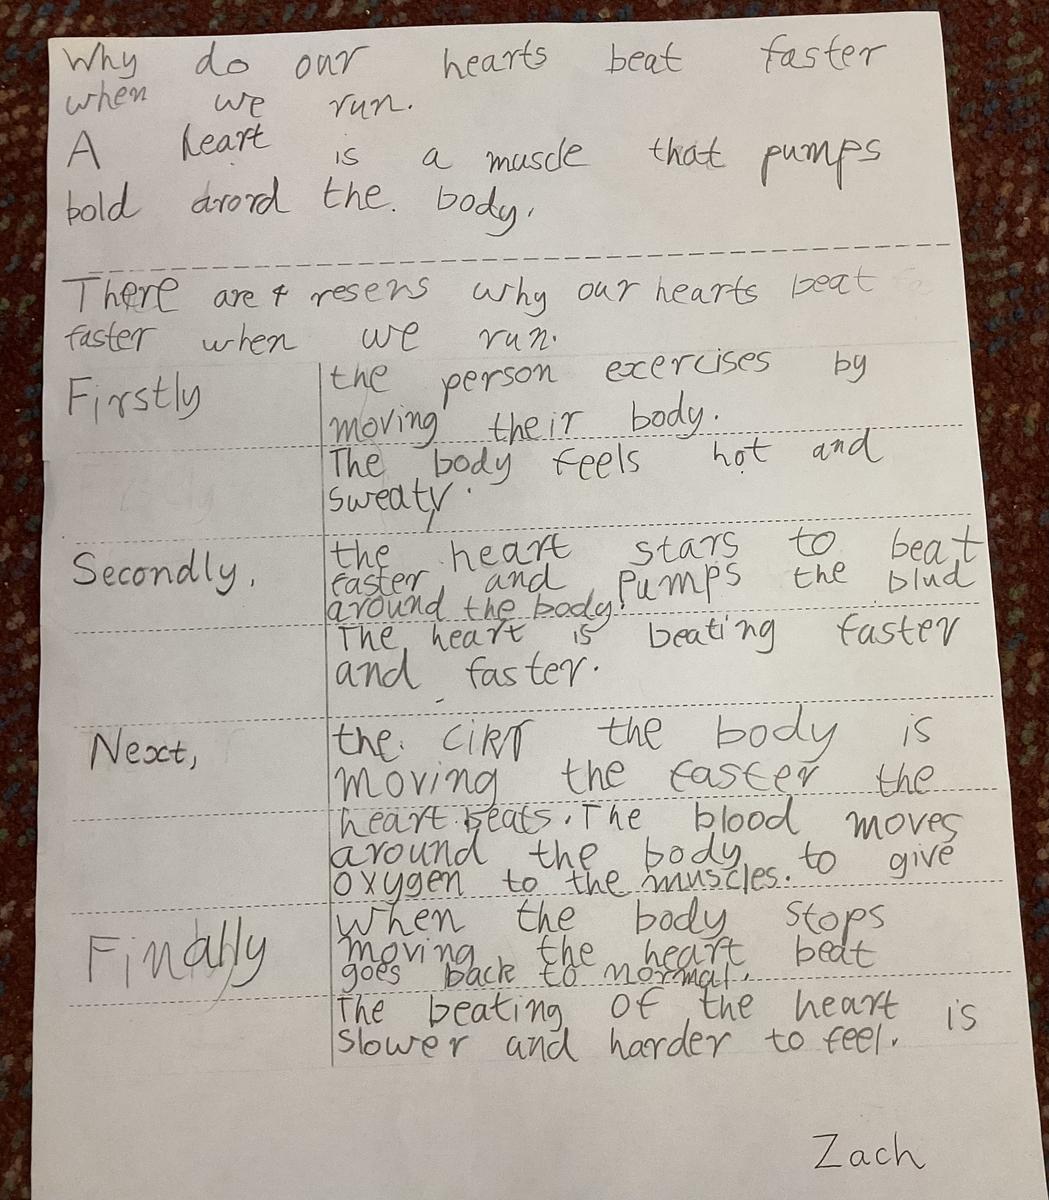 Why do our hearts beat faster
when we run.
A heart is a muscle that pumps
bold arord the. body.
There are 4 resens why our hearts beat
faster when we run.
Firstly
the person exercises by
moving their body.
The body feels hot and
sweaty.
Secondly,
the heart stars to beat
faster and pumps the blud
around the body.
The heart is beating faster
and faster.
Next,
the the body is
moving the faster the
heart beats. The blood moves
around the body to give
oxygen to the muscles.
Finally
when the body stops
moving the heart beat
goes back to normal.
The beating of the heart is
slower and harder to feel.
Zach